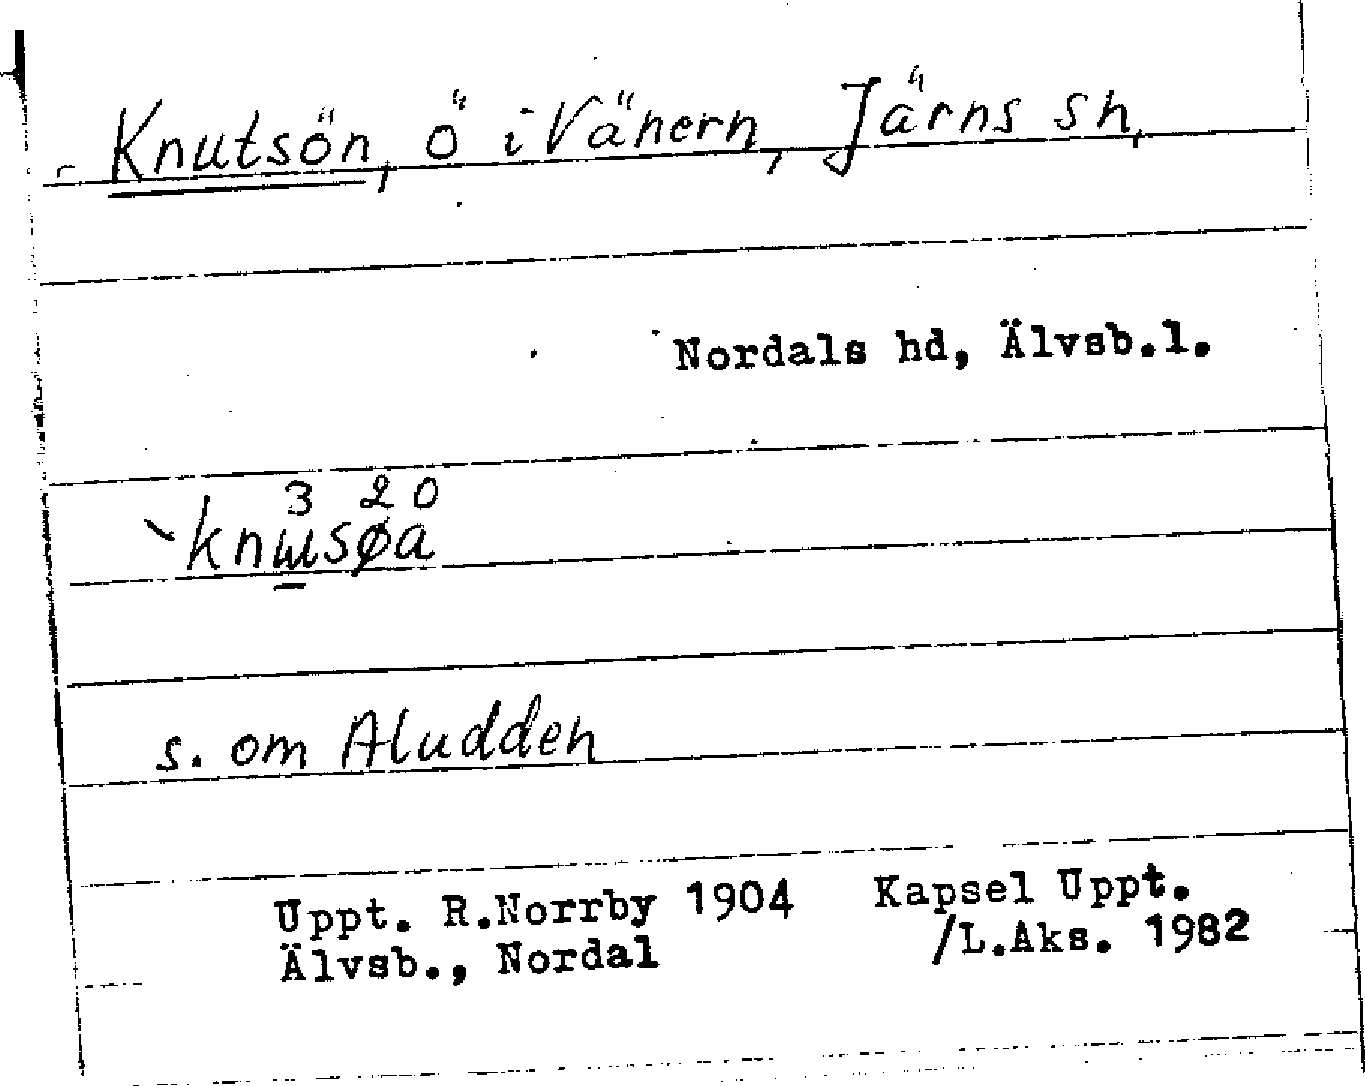 Knutsön, ö i Vänern, Järns sn,
Nordals hd, Älvsb.l.
3 2 0
knɯsøa
s. om Aludden
Uppt. R.Norrby 1904 Kapsel Uppt.
Älvsb., Nordal /L.Aks. 1982